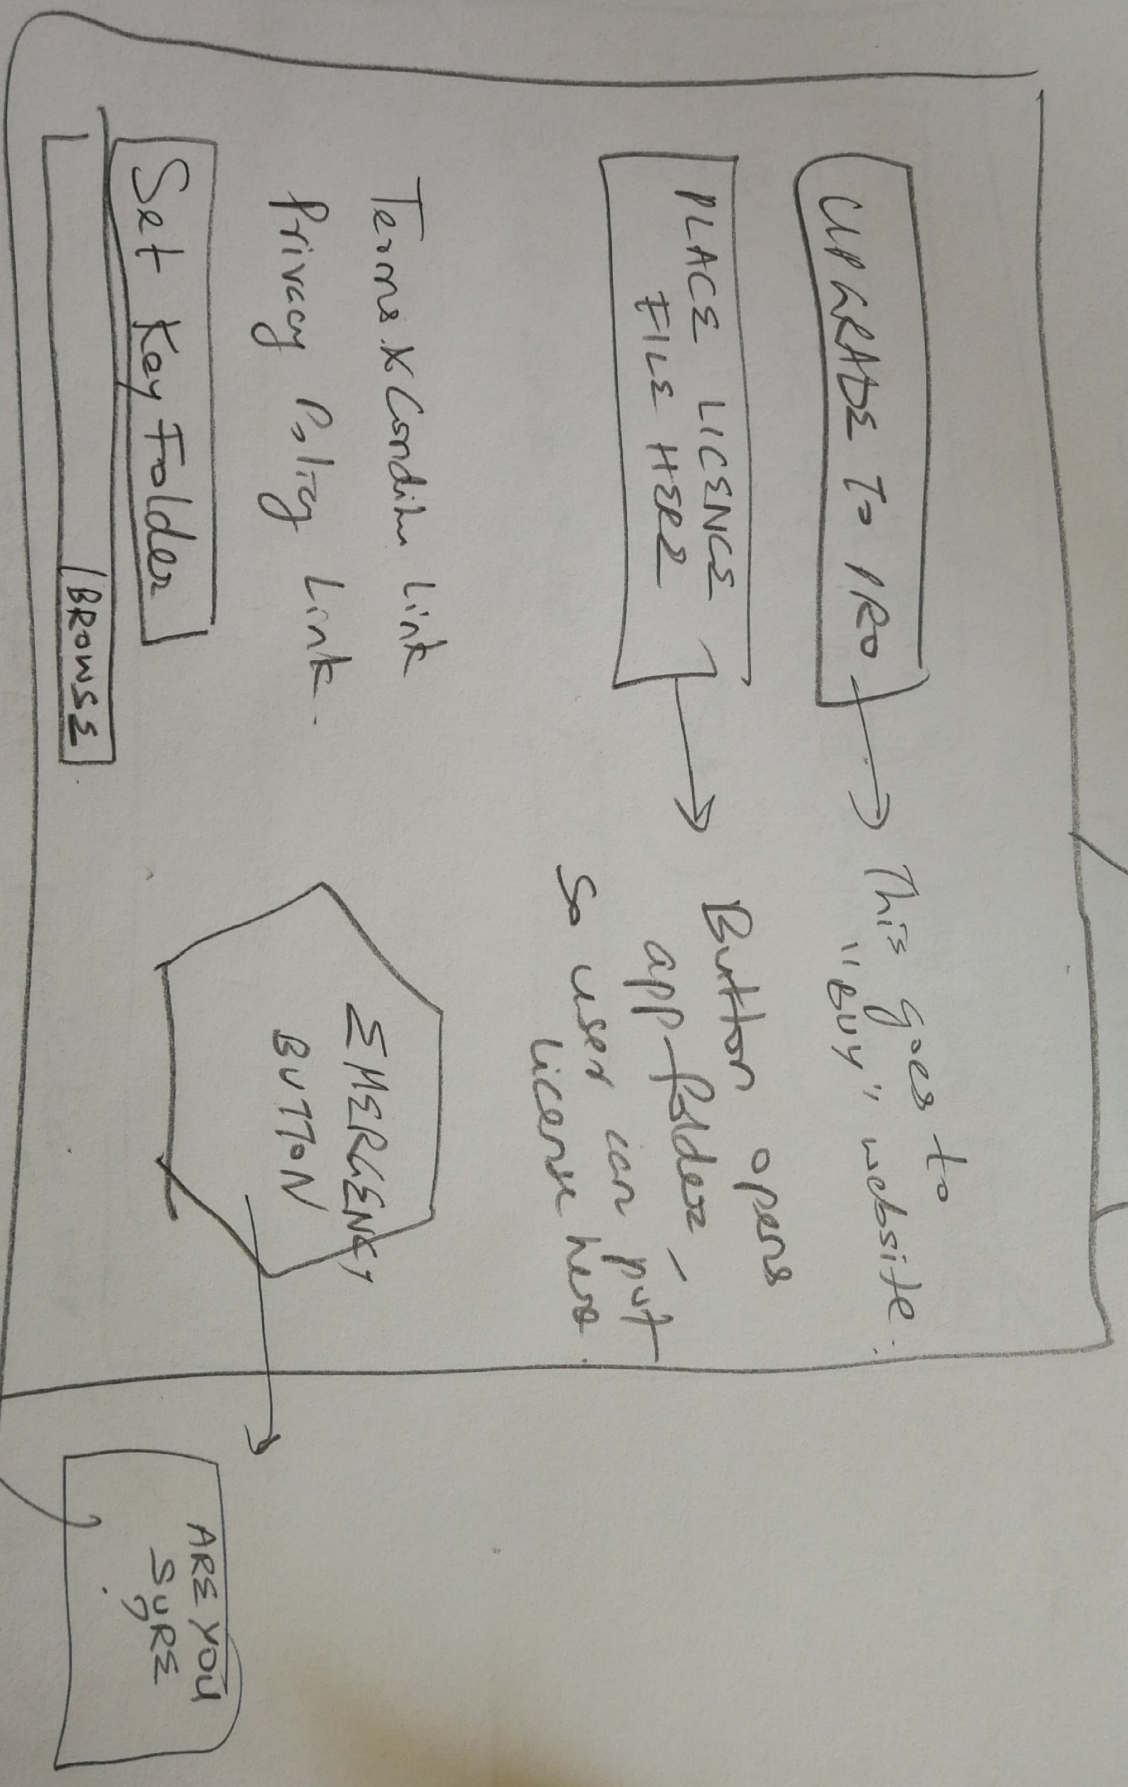 UPGRADE TO PRO
This goes to
"BUY" website.
PLACE LICENCE
FILE HERE
Button opens
app folder,
so user can put
license here.
Terms & Condition Link
Privacy Policy Link.
EMERGENCY
BUTTON
Set Key Folder
BROWSE
ARE YOU
SURE